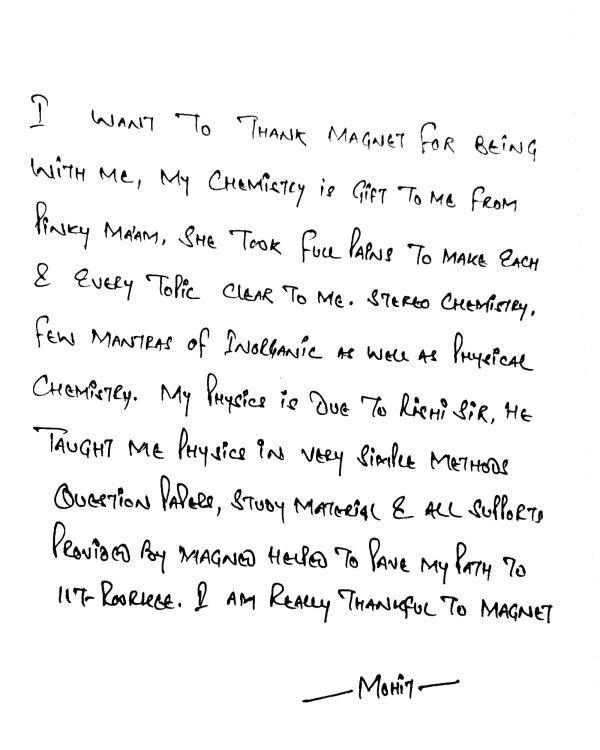 I WANT TO THANK MAGNET FOR BEING
WITH ME, MY CHEMISTRY is GIFT TO ME FROM
PINKY MA'AM, SHE TOOK FULL PAINS TO MAKE EACH
& EVERY TOPIC CLEAR TO ME. STEREO CHEMISTRY,
FEW MANTRAS OF INORGANIC AS WELL AS PHYSICAL
CHEMISTRY. MY PHYSICS is DUE TO RISHI SIR, HE
TAUGHT ME PHYSICS IN VERY SIMPLE METHODS
QUESTION PAPERS, STUDY MATERIAL & ALL SUPPORTS
PROVIDED BY MAGNED HELPED TO PAVE MY PATH TO
IIT-ROORKEE. I AM REALLY THANKFUL TO MAGNET
— MOHIT —